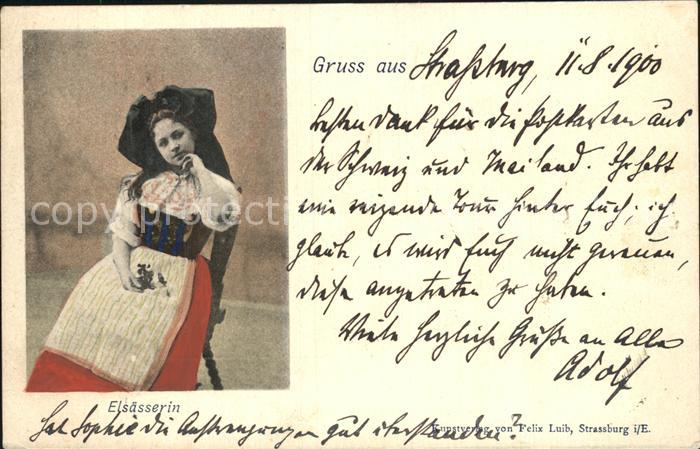 Gruss aus Straßburg, 11.8.1900
besten Dank für die Postkarten aus
der Schweiz und Mailand. Ihr habt
eine reizende Tour hinter Euch; ich
glaube, es wird Euch nicht gereuen,
diese angetreten zu haben.
Viele herzliche Grüße an Alle
Adolf
Elsässerin
Kunstverlag von Felix Luib, Strassburg i/E.
hat Sophie die Anstrengungen gut überstanden?
copyright protected